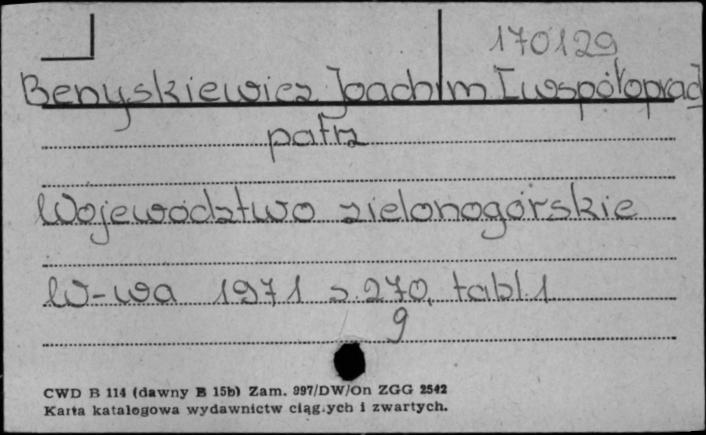 170129
Benyskiewicz Joachim [współoprac]
patrz
Województwo zielonogórskie
W-wa 1971 s. 270, tabl. 1
9
CWD B 114 (dawny B 15b) Zam. 997/DW/On ZGG 2542
Karta katalogowa wydawnictw ciągłych i zwartych.